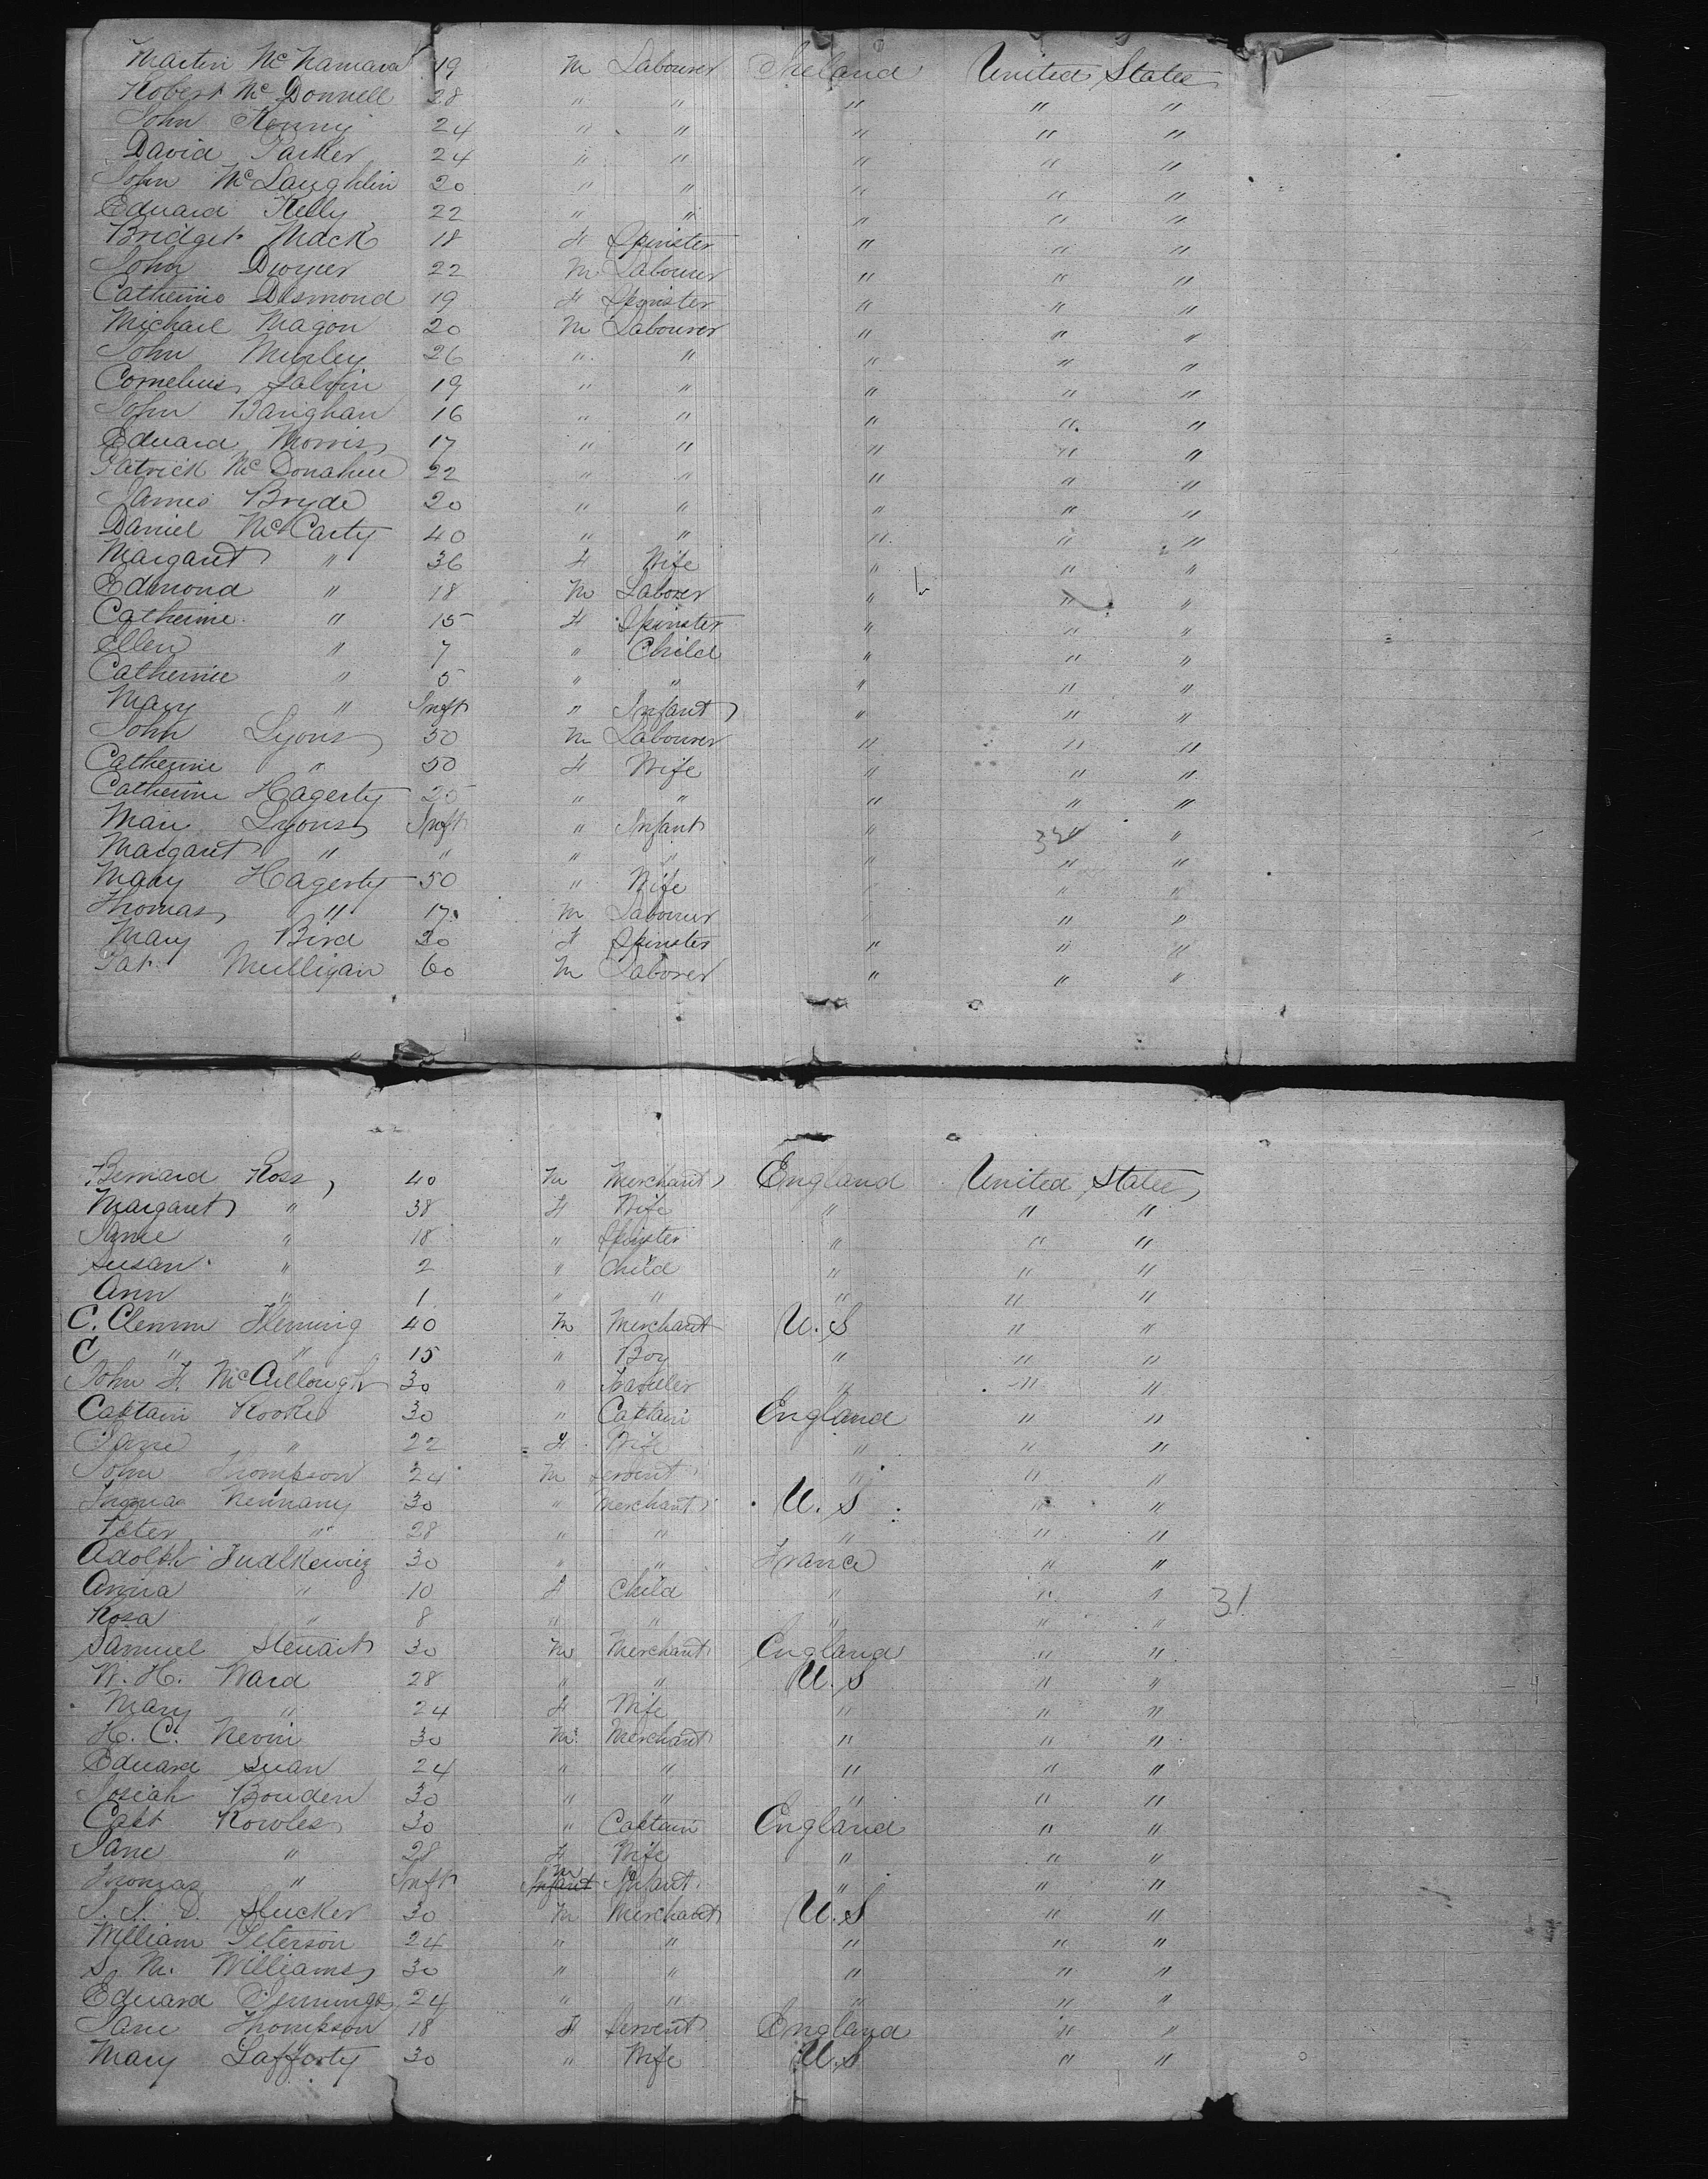 Martin McNamara 19 M Labourer Ireland United States
Robert McDonnell 28 " " " " "
John Kenny 24 " " " " "
David Parker 24 " " " " "
John McLaughlin 20 " " " " "
Edward Kelly 22 " " " " "
Bridget Mack 18 F Spinster " " "
John Dwyer 22 M Labourer " " "
Catherine Desmond 19 F Spinster " " "
Michael Magon 20 M Labourer " " "
John Murley 26 " " " " "
Cornelius Salvin 19 " " " " "
John Barighan 16 " " " " "
Edward Morris 17 " " " " "
Patrick McDonahue 22 " " " " "
James Bryde 20 " " " " "
Daniel McCarty 40 " " " " "
Margaret " 36 F Wife " " "
Edmond " 18 M Laborer " " "
Catherine " 15 F Spinster " " "
Ellen " 7 " Child " " "
Catherine " 5 " " " " "
Mary " Inft " Infant " " "
John Lyons 50 M Labourer " " "
Catherine " 50 F Wife " " "
Catherine Hagerty 25 " " " " "
Mary Lyons Inft " Infant " 32 "
Margaret " " " " " " "
Mary Hagerty 50 " Wife " " "
Thomas " 17 M Labourer " " "
Mary Bird 20 F Spinster " " "
Pat Mulligan 60 M Laborer " " "
Bernard Ross 40 M Merchant England United States
Margaret " 38 F Wife " " "
Jane " 18 " Spinster " " "
Susan " 2 " Child " " "
Ann " 1 " " " " "
C. Clemm Fleming 40 M Merchant U.S " "
C " " 15 " Boy " " "
John F. McCullough 30 " Traveller " " "
Captain Rooke 30 " Captain England " "
Jane " 22 F Wife " " "
John Thompson 24 M Servent " " "
Thomas Nennany 30 " Merchant U.S " "
Peter " 28 " " " " "
Adolph Judlkewicz 30 " " France " "
Anna " 10 F Child " " " 31
Rosa " 8 " " " " "
Samuel Steuart 30 M Merchant England " "
W. H. Ward 28 " " U.S " "
Mary " 24 F Wife " " "
H. C. Nevin 30 M Merchant " " "
Edward Swan 24 " " " " "
Josiah Bouden 30 " " " " "
Capt Rowles 30 " Captain England " "
Jane " 28 F Wife " " "
Thomas " Inft Infant M Infant " " "
30 M Merchant U.S " "
William Peterson 24 " " " " "
S. M. Williams 30 " " " " "
Edward Jennings 24 " " " " "
Jane Thompson 18 F Servent England " "
Mary Lafferty 30 " Wife U.S " "